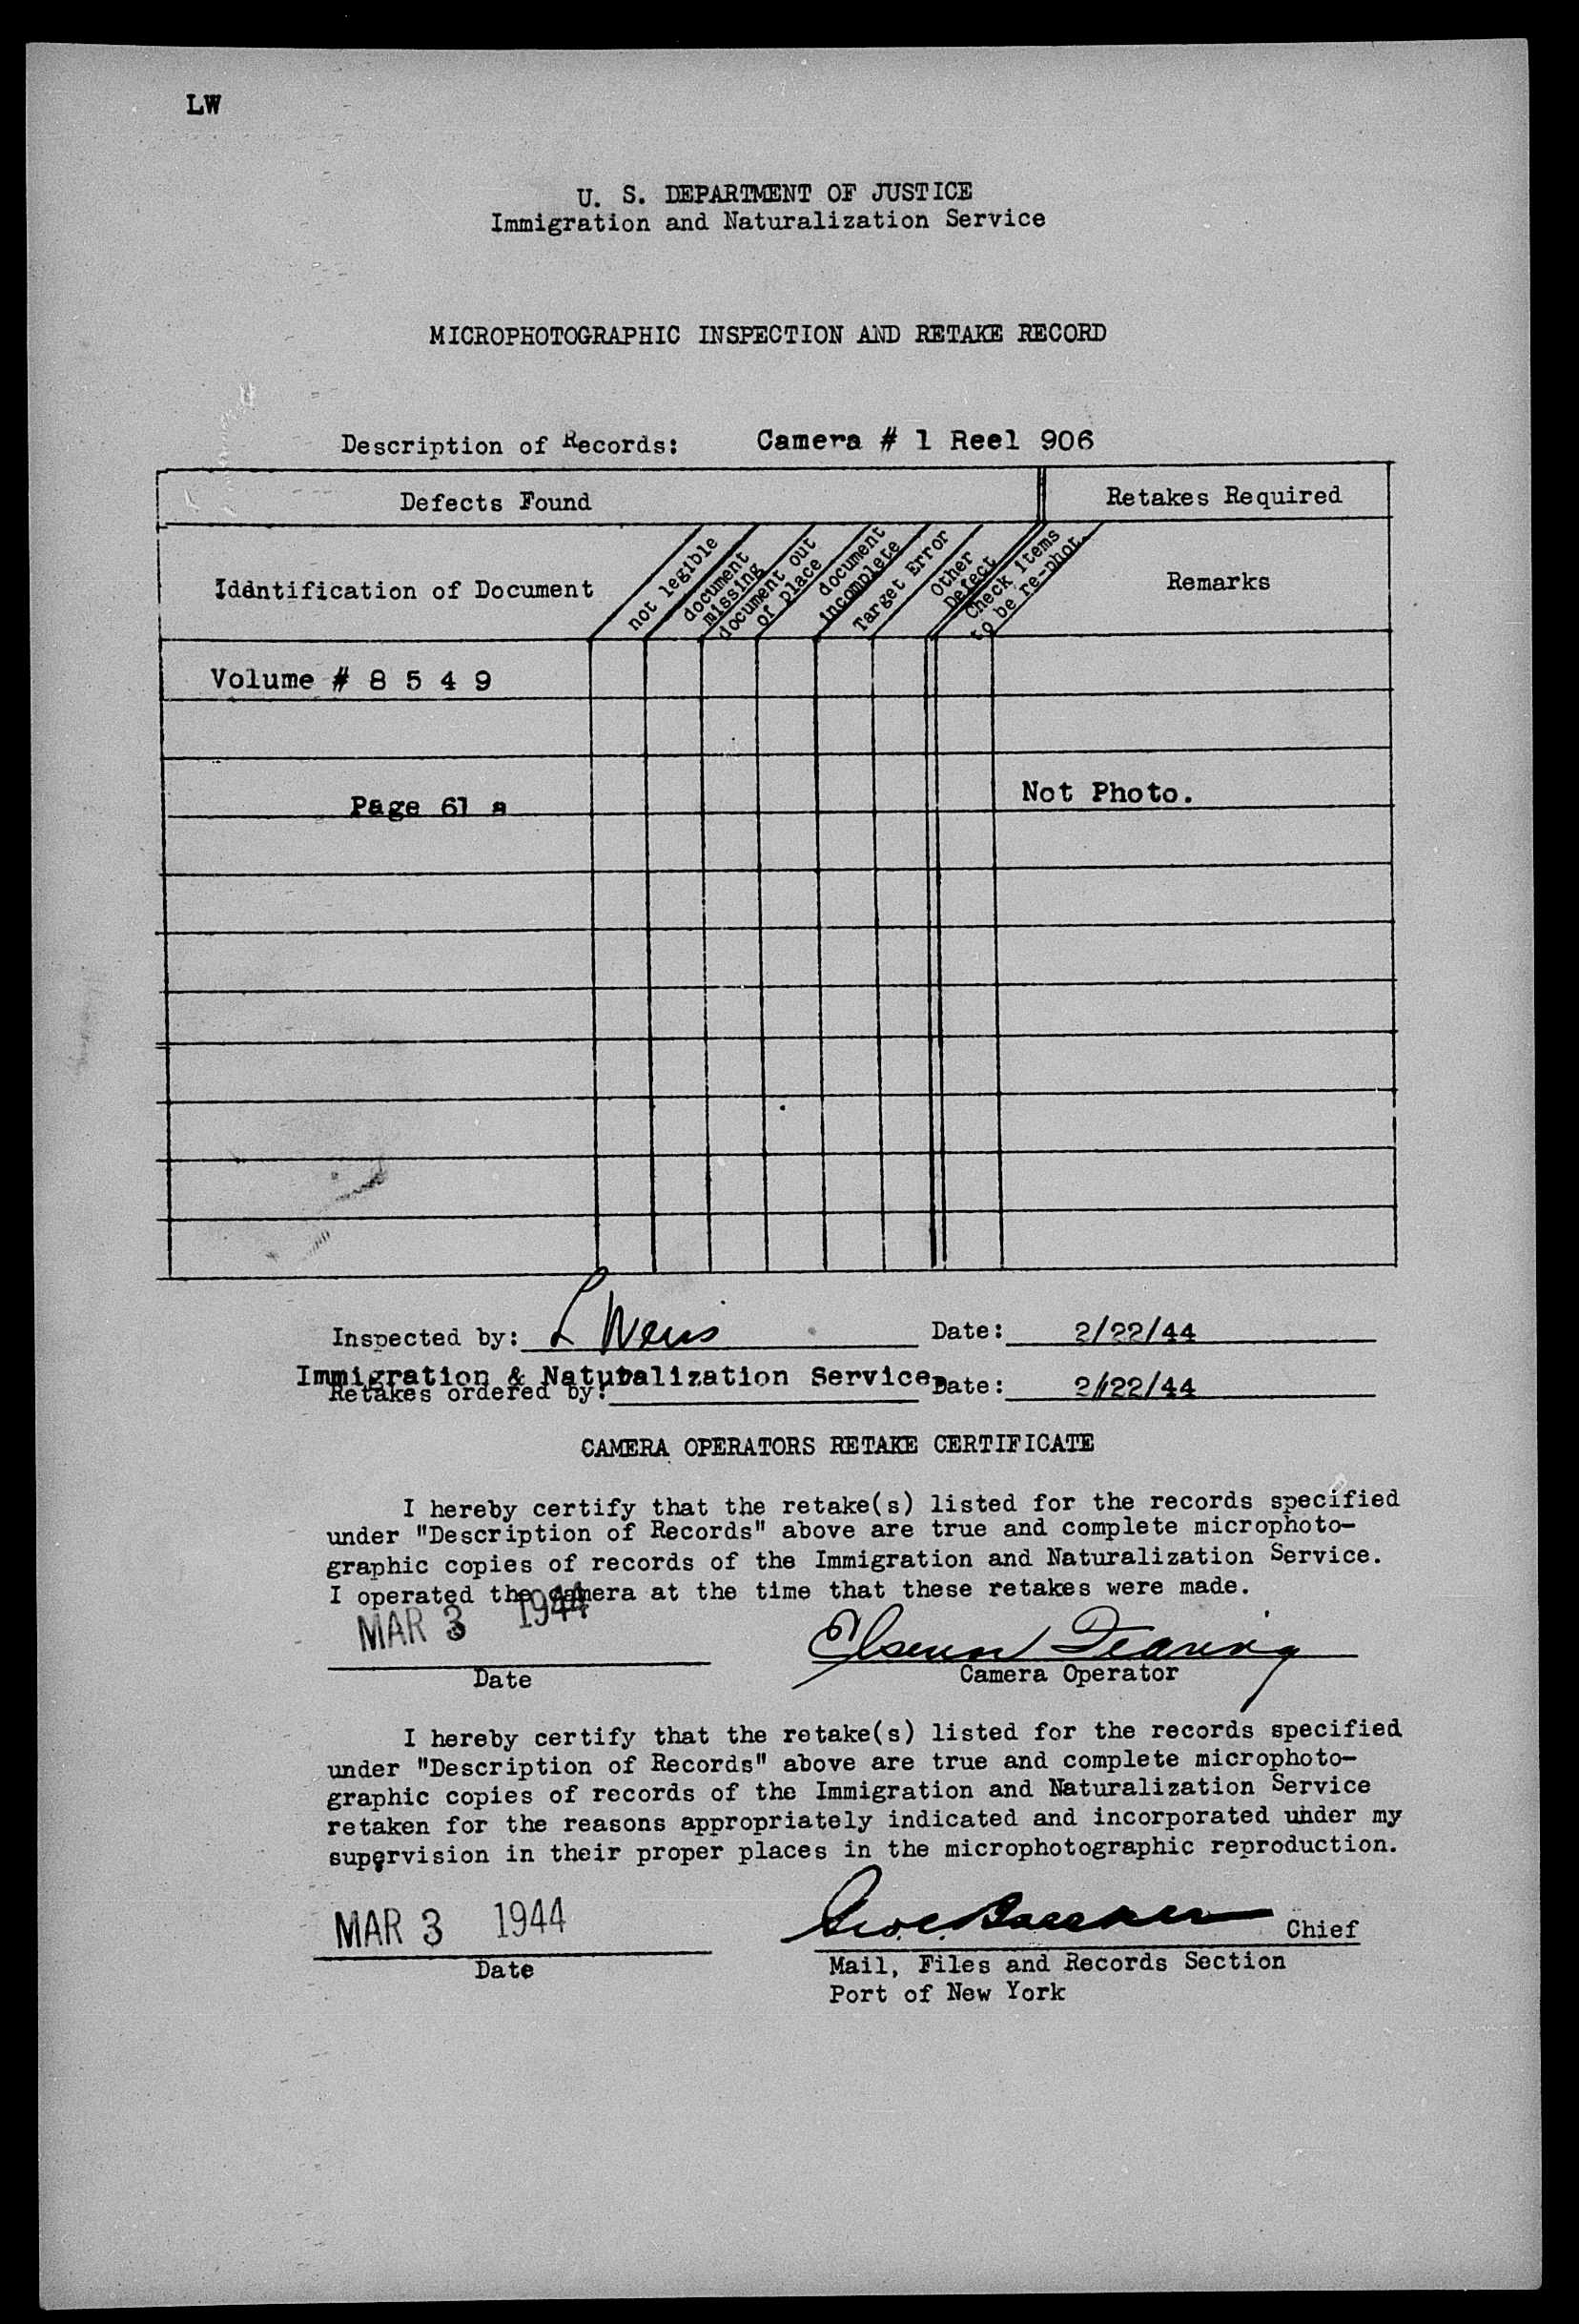 LW
U. S. DEPARTMENT OF JUSTICE
Immigration and Naturalization Service
MICROPHOTOGRAPHIC INSPECTION AND RETAKE RECORD
Description of Records: Camera # 1 Reel 906
Defects Found
Retakes Required
Identification of Document
not legible
document
missing
document out
of place
document
incomplete
Target Error
Other
Defect
Check items
to be re-phot.
Remarks
Volume # 8 5 4 9
Page 61 a
Not Photo.
Inspected by: L Weis Date: 2/22/44
Immigration & Naturalization Service
Retakes ordered by: Date: 2/22/44
CAMERA OPERATORS RETAKE CERTIFICATE
I hereby certify that the retake(s) listed for the records specified
under "Description of Records" above are true and complete microphoto-
graphic copies of records of the Immigration and Naturalization Service.
I operated the camera at the time that these retakes were made.
MAR 3 1944
Date
Camera Operator
I hereby certify that the retake(s) listed for the records specified
under "Description of Records" above are true and complete microphoto-
graphic copies of records of the Immigration and Naturalization Service
retaken for the reasons appropriately indicated and incorporated under my
supervision in their proper places in the microphotographic reproduction.
MAR 3 1944
Chief
Date
Mail, Files and Records Section
Port of New York